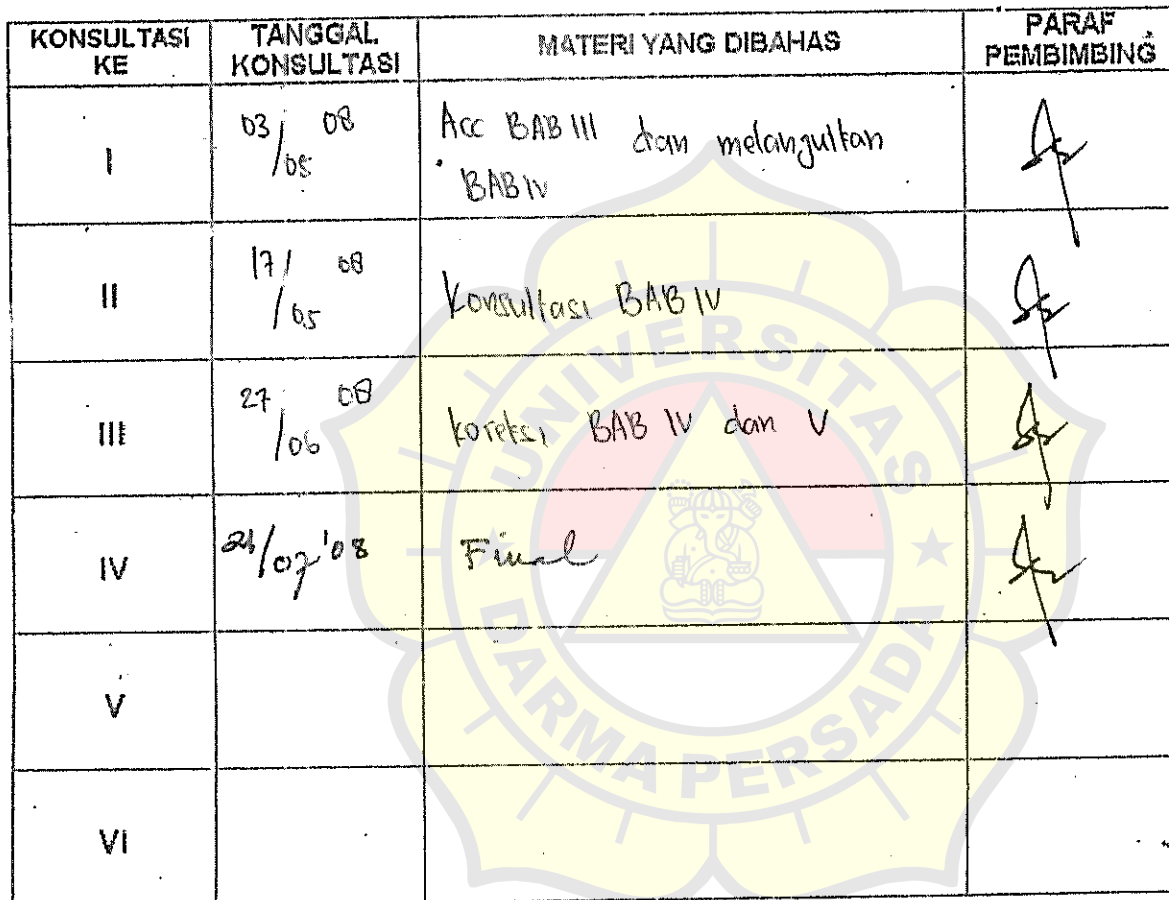 KONSULTASI KE
TANGGAL KONSULTASI
MATERI YANG DIBAHAS
PARAF PEMBIMBING
I
03/05 08
Acc BAB III dan melanjutkan
BAB IV
II
17/05 08
Konsultasi BAB IV
III
27/06 08
koreksi BAB IV dan V
IV
/07 '08
Final
V
VI
UNIVERSITAS
DARMA PERSADA